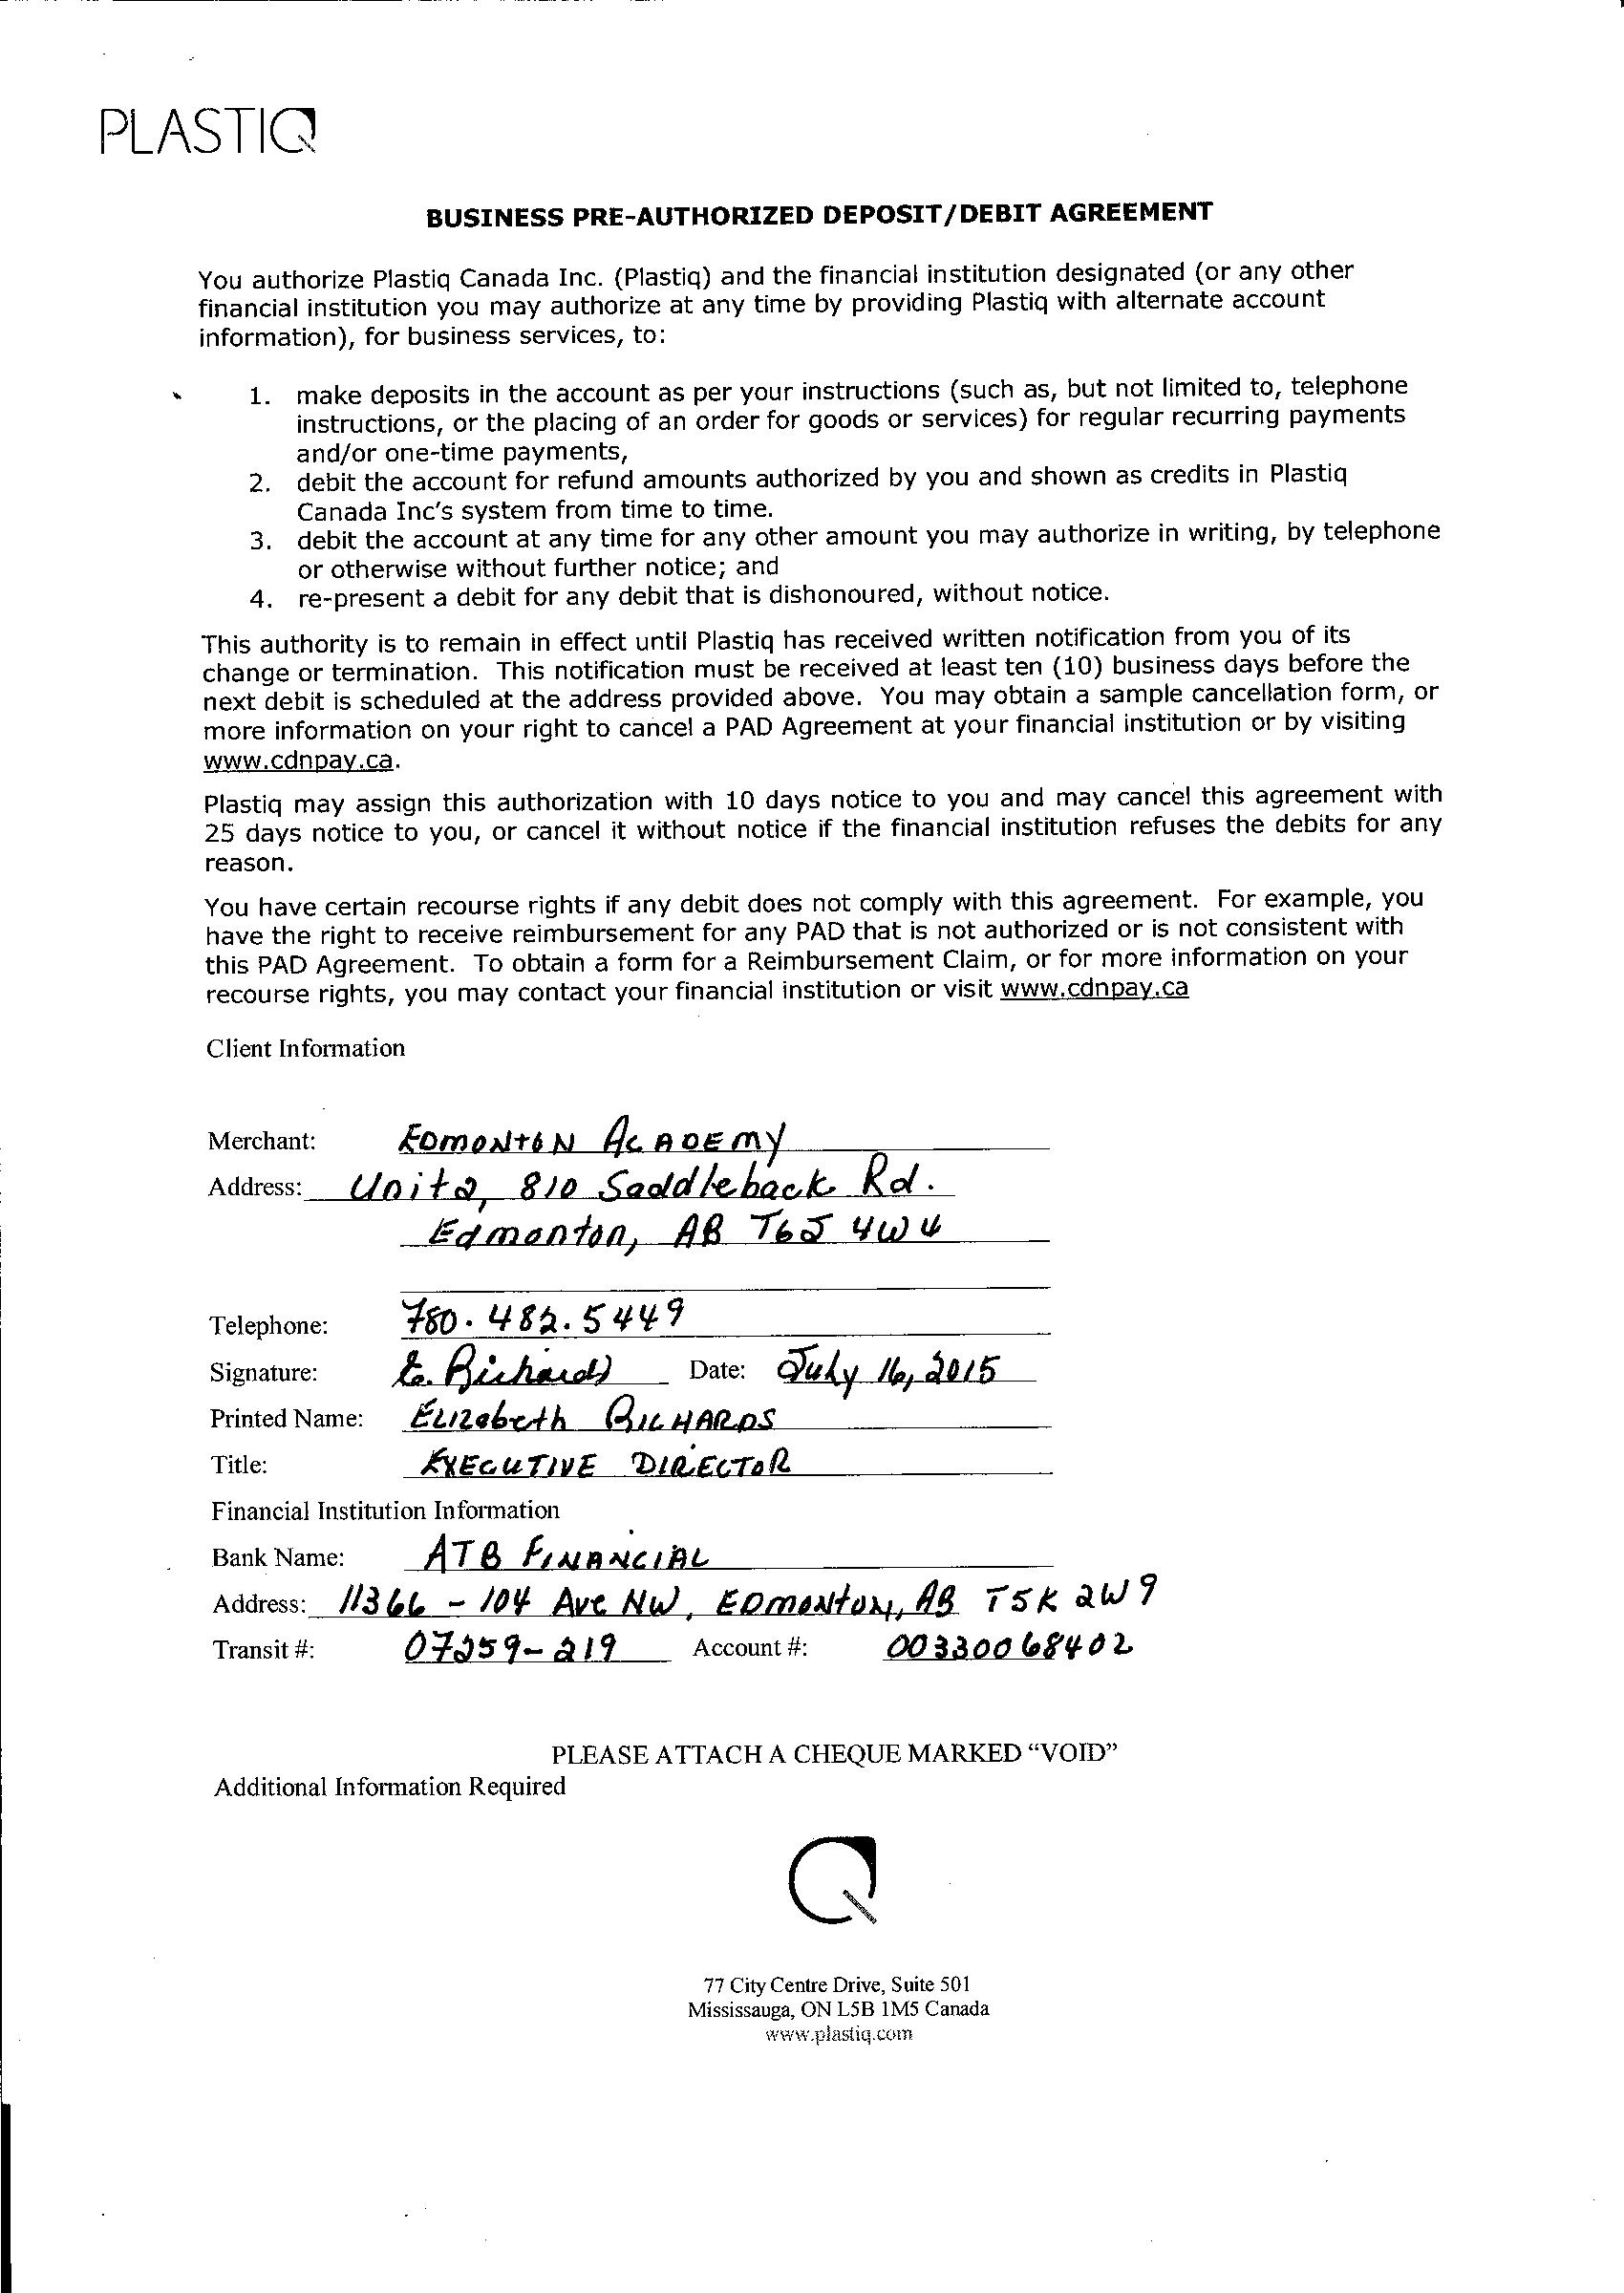 PLASTIQ
BUSINESS PRE-AUTHORIZED DEPOSIT/DEBIT AGREEMENT
You authorize Plastiq Canada Inc. (Plastiq) and the financial institution designated (or any other
financial institution you may authorize at any time by providing Plastiq with alternate account
information), for business services, to:
1. make deposits in the account as per your instructions (such as, but not limited to, telephone
instructions, or the placing of an order for goods or services) for regular recurring payments
and/or one-time payments,
2. debit the account for refund amounts authorized by you and shown as credits in Plastiq
Canada Inc's system from time to time.
3. debit the account at any time for any other amount you may authorize in writing, by telephone
or otherwise without further notice; and
4. re-present a debit for any debit that is dishonoured, without notice.
This authority is to remain in effect until Plastiq has received written notification from you of its
change or termination. This notification must be received at least ten (10) business days before the
next debit is scheduled at the address provided above. You may obtain a sample cancellation form, or
more information on your right to cancel a PAD Agreement at your financial institution or by visiting
www.cdnpay.ca.
Plastiq may assign this authorization with 10 days notice to you and may cancel this agreement with
25 days notice to you, or cancel it without notice if the financial institution refuses the debits for any
reason.
You have certain recourse rights if any debit does not comply with this agreement. For example, you
have the right to receive reimbursement for any PAD that is not authorized or is not consistent with
this PAD Agreement. To obtain a form for a Reimbursement Claim, or for more information on your
recourse rights, you may contact your financial institution or visit www.cdnpay.ca
Client Information
Merchant: EDMONTON ACADEMY
Address: Unit 2, 810 Saddleback Rd.
Edmonton, AB T6J 4W4
Telephone: 780.482.5449
Signature: E. Richards Date: July 16, 2015
Printed Name: Elizabeth RICHARDS
Title: EXECUTIVE DIRECTOR
Financial Institution Information
Bank Name: ATB FINANCIAL
Address: 11366 - 104 Ave NW, EDMONTON, AB T5K 2W9
Transit #: 07259-219 Account #: 00330068402
PLEASE ATTACH A CHEQUE MARKED “VOID”
Additional Information Required
77 City Centre Drive, Suite 501
Mississauga, ON L5B 1M5 Canada
www.plastiq.com